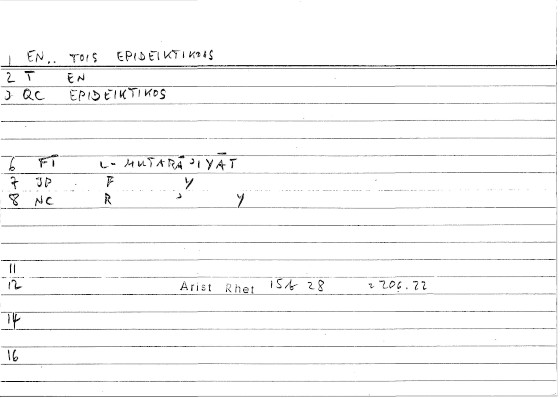 1 EN.. TOIS EPIDEIKTIKOIS
2 T EN
3 QC EPIDEIKTIKOS
6 FĪ L-MUTARĀʾIYĀT
7 JP F Y
8 NC R ʾ Y
11
12 Arist Rhet 15b 28 = 206.22
14
16